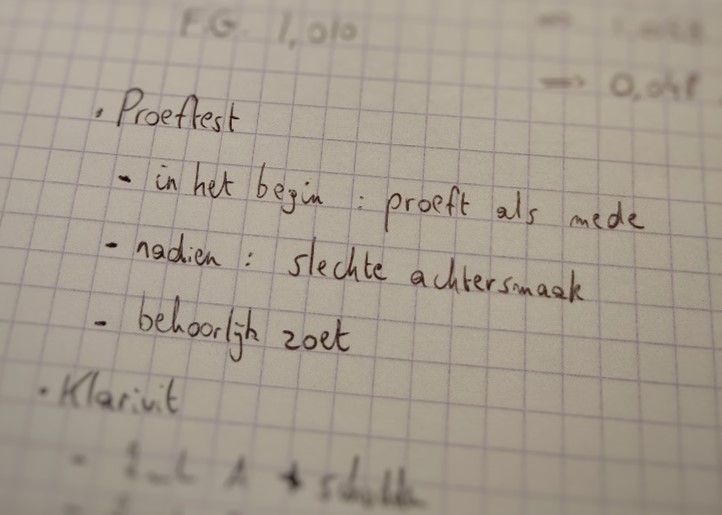 FG 1,010
• Proeftest
- in het begin : proeft als mede
- nadien : slechte achtersmaak
- behoorlijk zoet
• Klarivit